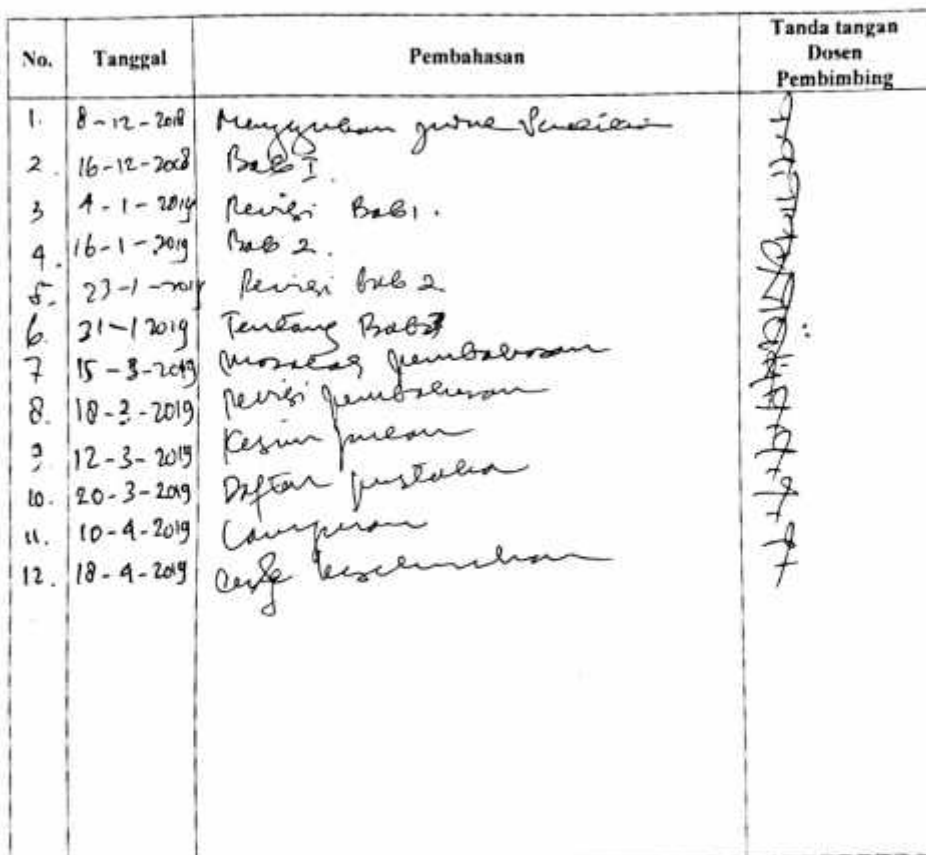 No. Tanggal Pembahasan Tanda tangan Dosen Pembimbing
1. 8-12-2018
2. 16-12-2018 Bab I
3 4-1-2019 Revisi Bab 1.
4. 16-1-2019 Bab 2.
5. 23-1-2019 Revisi bab 2
6. 31-1 2019 Tentang Bab 3
7 15-3-2019 pembahasan
8. 18-3-2019 Revisi pembahasan
9. 12-3-2019 Kesimpulan
10. 20-3-2019 Daftar pustaka
11. 10-4-2019 Lampiran
12. 18-4-2019 keseluruhan